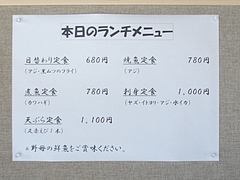 本日のランチメニュー
日替わり定食 680円
(アジ・里ムツのフライ)
焼魚定食 780円
(アジ)
煮魚定食 780円
(カワハギ)
刺身定食 1,000円
(ヤズ・イトヨリ・アジ・水イカ)
天ぷら定食 1,100円
(足赤えび1本)
※野母の鮮魚をご賞味ください。